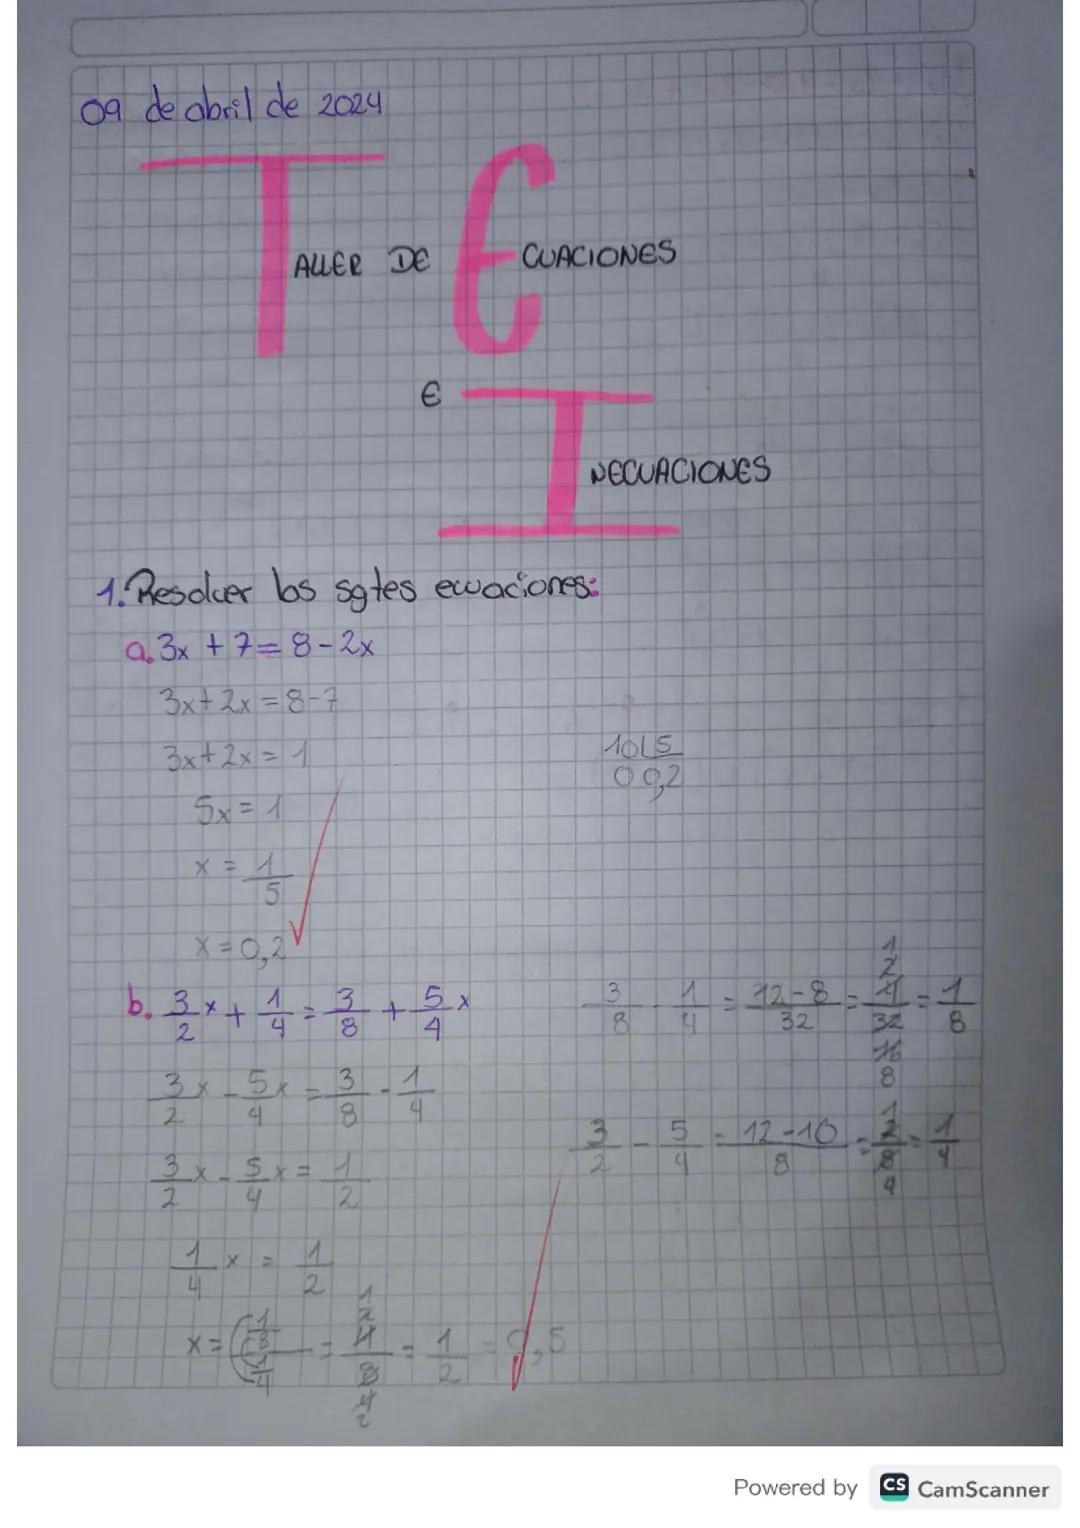 09 de abril de 2024
TALLER DE ECUACIONES
E
INECUACIONES
1. Resolver las sgtes ecuaciones:
a. 3x + 7 = 8 - 2x
3x + 2x = 8 - 7
3x + 2x = 1
5x = 1
x = 1/5
x = 0,2
10 | 5
0 0,2
b. 3/2 x + 1/4 = 3/8 + 5/4 x
3/2 x - 5/4 x = 3/8 - 1/4
3/2 x - 5/4 x = 1/2
1/4 x = 1/2
x = (1/8)/(1/4) = 4/8 = 1/2 = 0,5
3/8 - 1/4 = 12-8/32 = 4/32 = 1/8
3/2 - 5/4 = 12-10/8 = 2/8 = 1/4
Powered by CS CamScanner